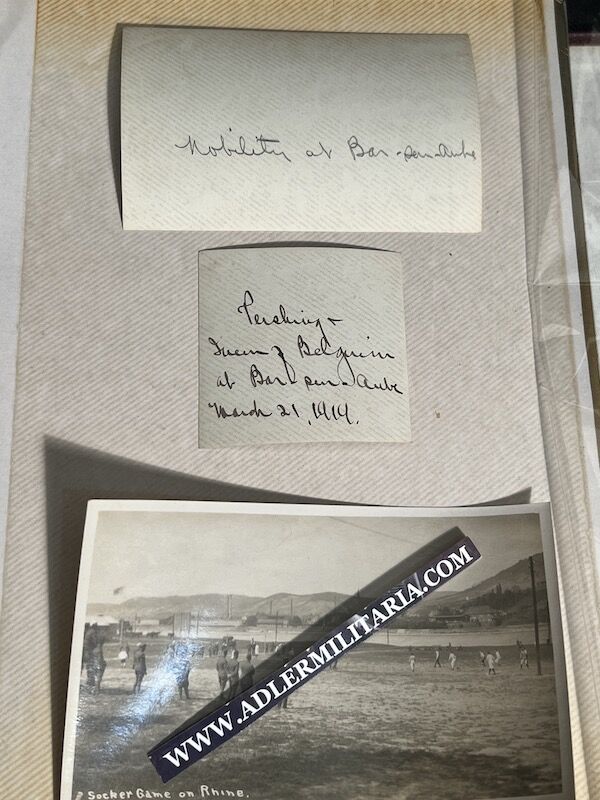 Nobility at Bar-sur-Aube
Pershing +
Queen of Belguim
at Bar-sur-Aube
March 21, 1919.
WWW.ADLERMILITARIA.COM
Socker Game on Rhine.